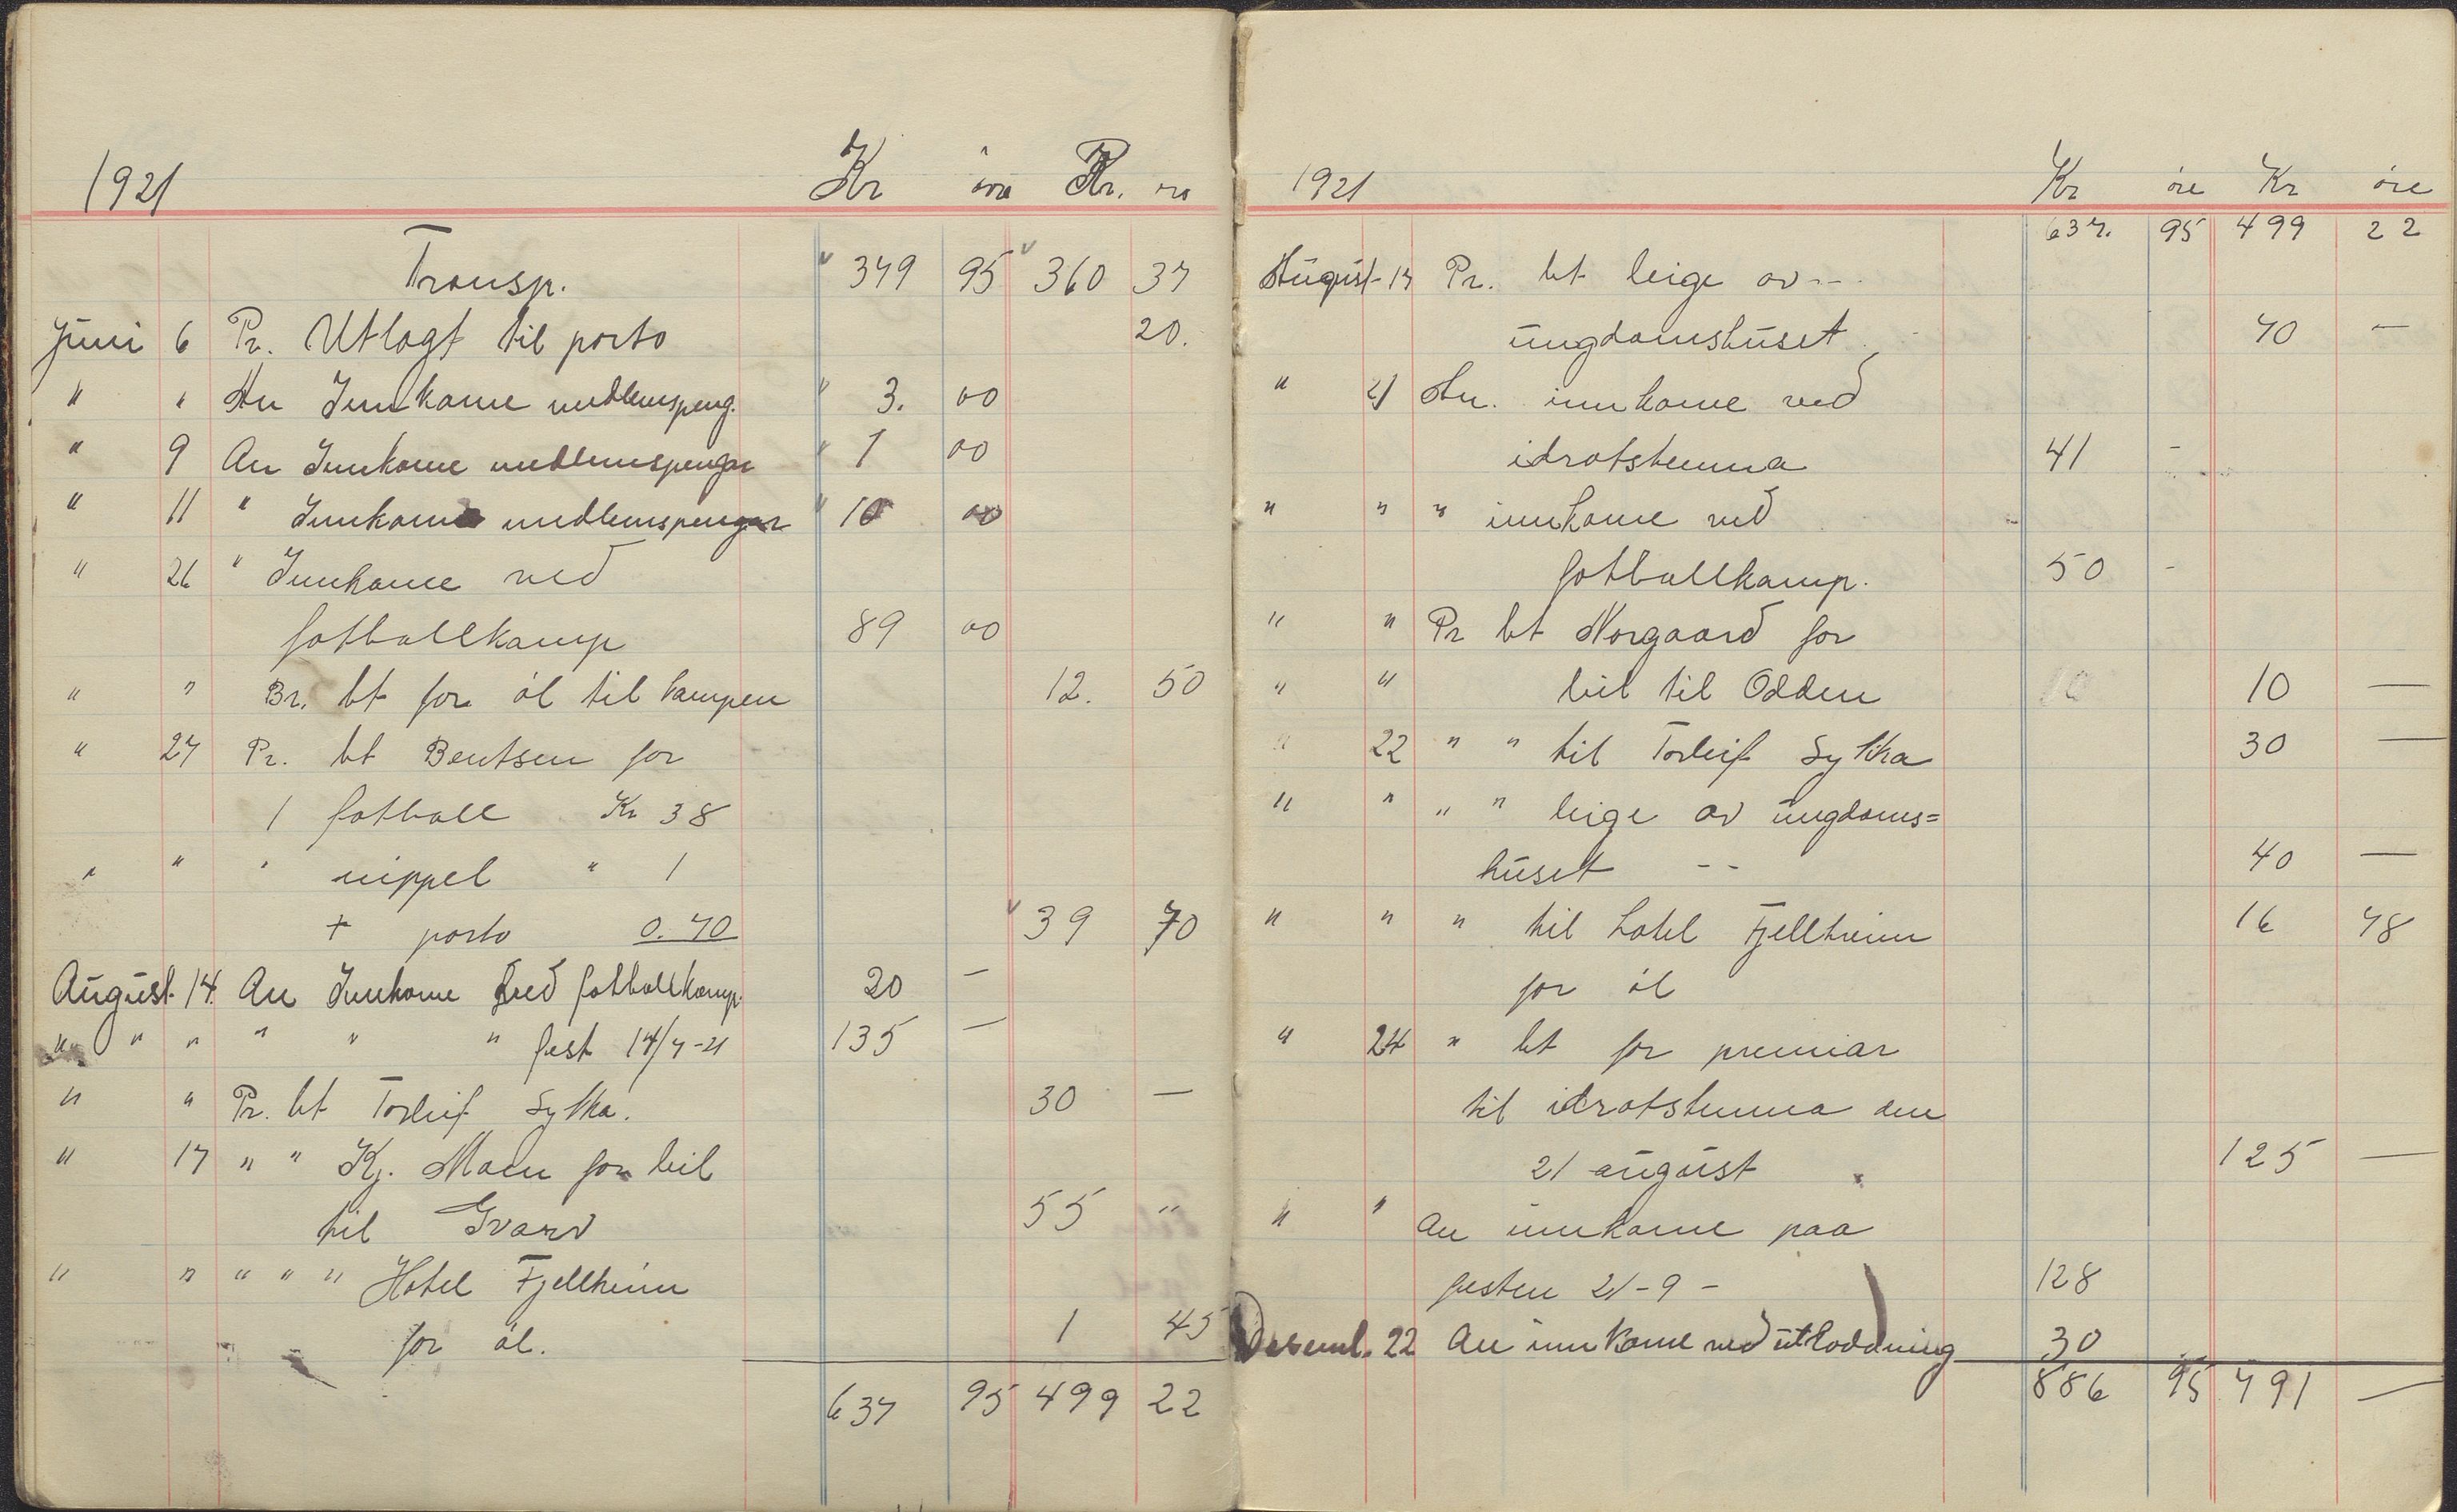 1921 Kr øre Kr. øre
Transp. 379 95 360 37
Juni 6 Pr. Utlagt til porto 20.
" " An Innkome medlemspeng. " 3. 00
" 9 An Innkome medlemspengar " 1 00
" 11 " Innkome medlemspengar " 10 00
" 26 " Innkome ved
fotballkamp 89 00
" " Br. bt for øl til kampen 12. 50
" 27 Pr. bt Bentsen for
1 fotball Kr 38
" " " nippel " 1
+ porto 0.70 39 70
August 14. An Innkome ved fotballkamp. 20 —
" " " " " " fest 14/7-21 135 —
" " Pr. bt Torleif Sytka. 30 —
" 17 " " Kj. Moen for bil
til Gvarv 55 "
" " " " " Hotel Fjellheim
for øl. 1 45
637 95 499 22
1921 Kr øre Kr øre
637. 95 499 22
August 17 Pr. bt leige av --
ungdomshuset 70 —
" 21 An. innkome ved
idrotstemna 41 -
" " " innkome ved
fotballkamp. 50 -
" " Pr bt Norgaard for
" " bil til Odden 10 —
" 22 " " til Torleif Sytka 30 —
" " " " leige av ungdoms=
huset -- 40 —
" " " til hotel Fjellheim 16 78
for øl
" 24 " bt for premiar
til idrotstemna den
21 august 125 —
" " An innkome paa
festen 21-9- 128
Desemb. 22 An innkome ved utloddning 30
886 95 791 —